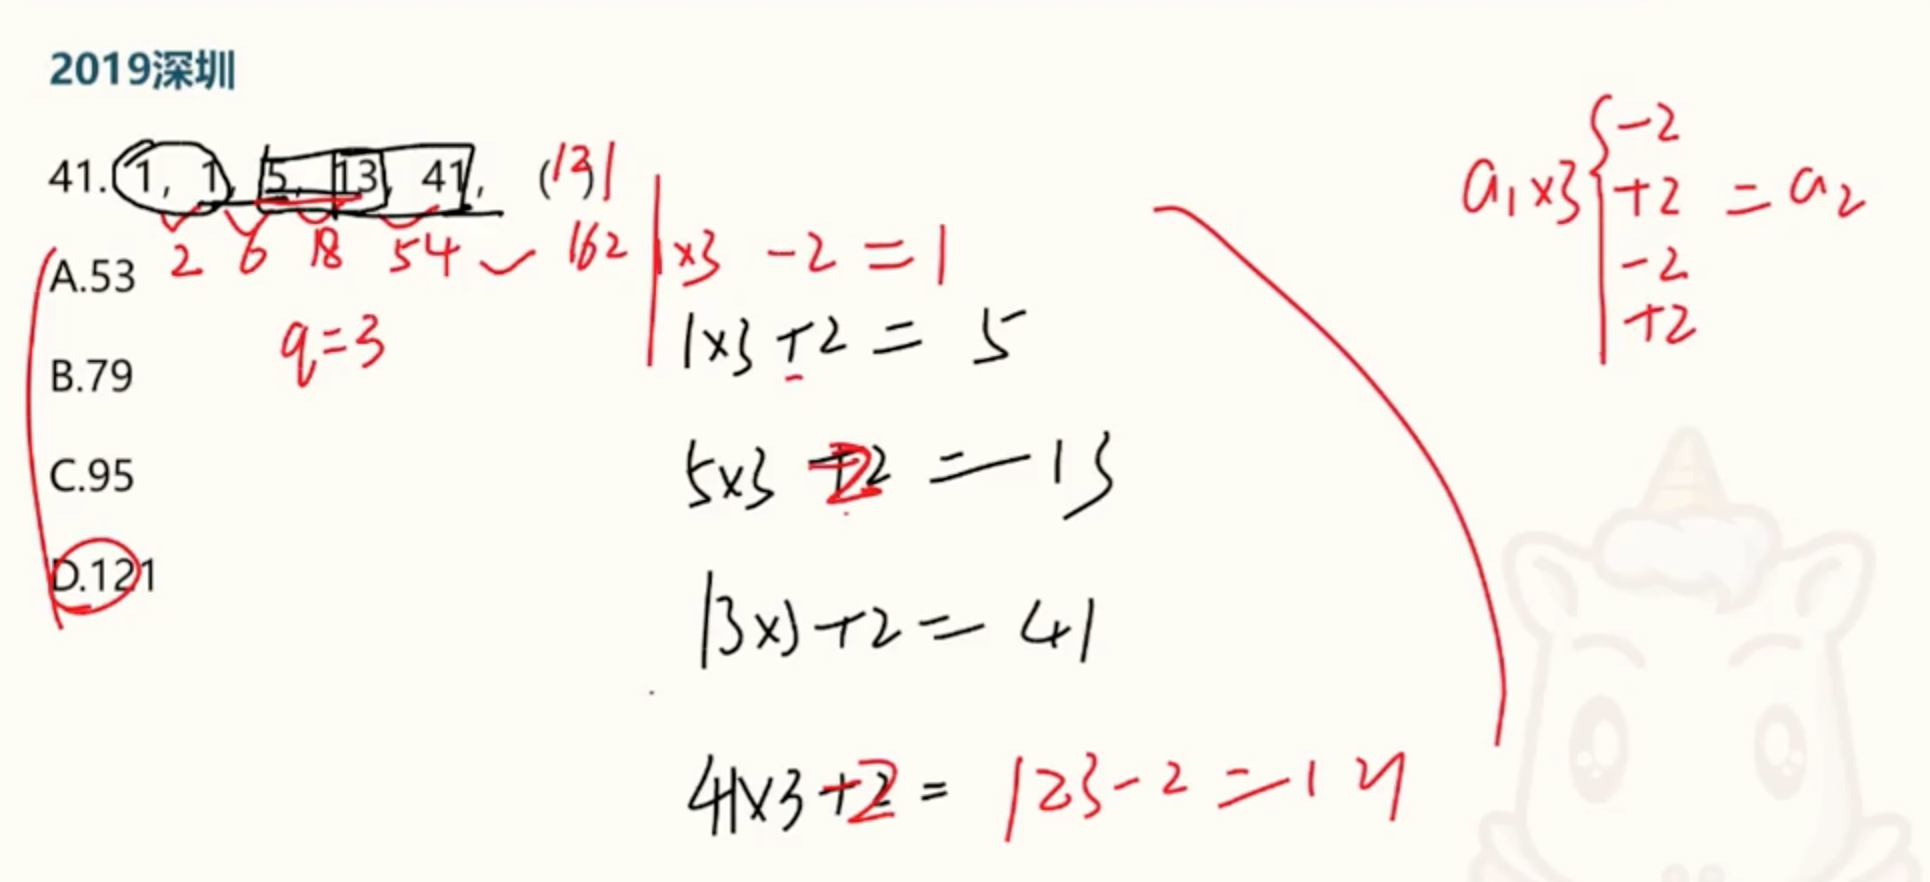 2019深圳
41. 1, 1, 5, 13, 41, (121)
2 6 18 54 162
A.53
q=3
B.79
C.95
D.121
1×3 -2 = 1
1×3 +2 = 5
5×3 -2 = 13
13×3+2= 41
41×3-2= 123-2=121
a₁×3 { -2
+2 = a₂
-2
+2